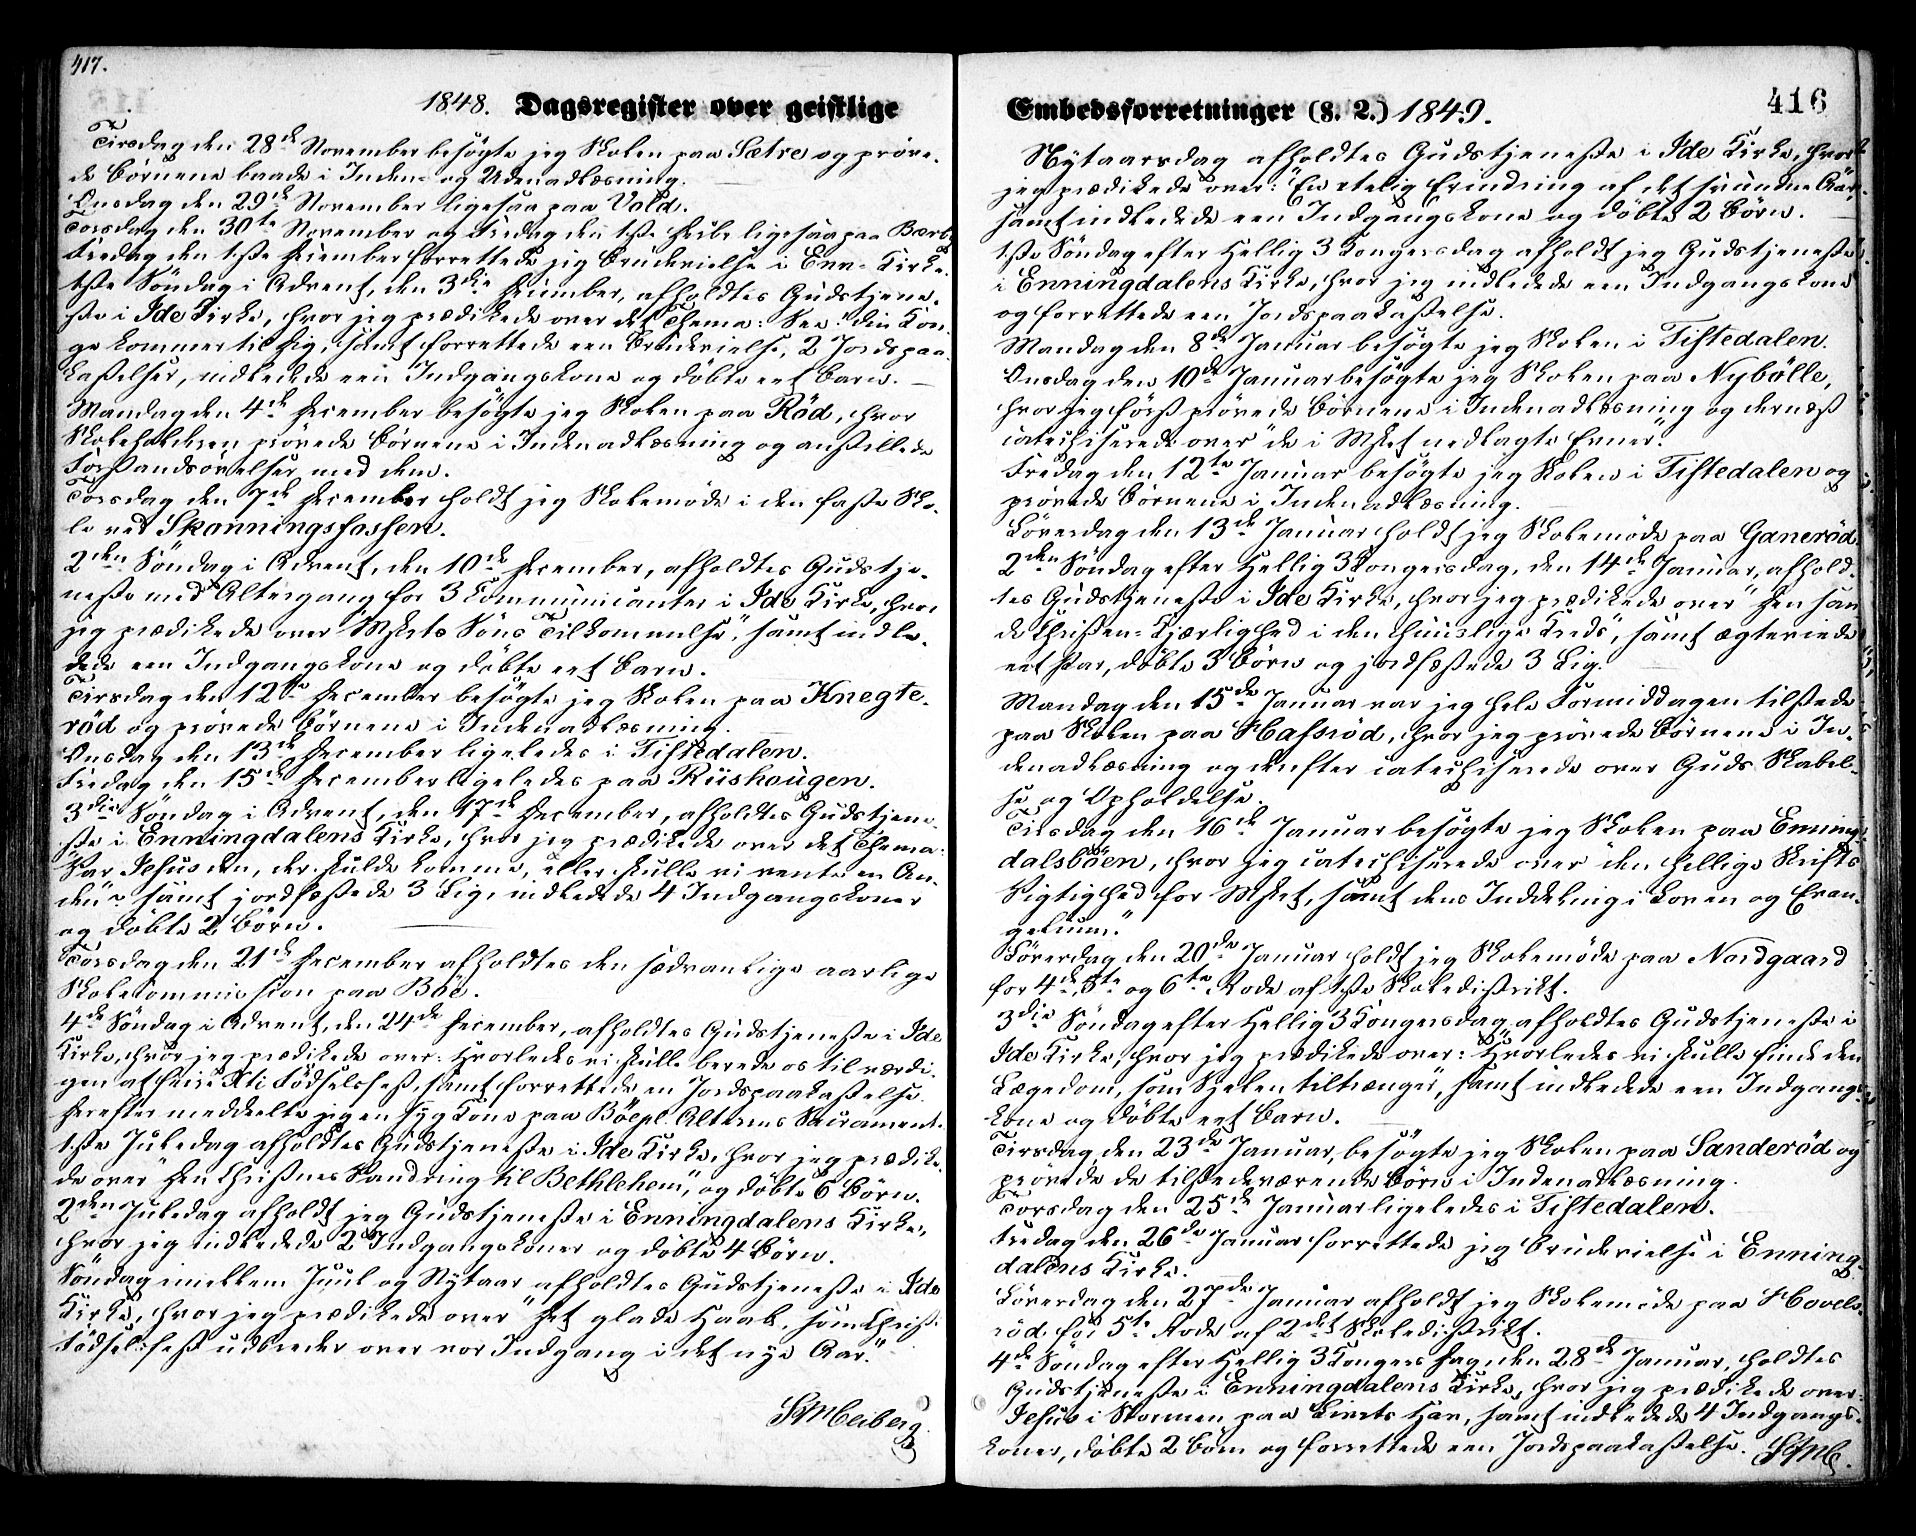 417.
1848. Dagsregister over geistlige
Tirsdag den 28de November besögte jeg Skolen paa Sætre og pröve-
de Börnene baade i Inden- og Udenadlæsning.
Onsdag den 29de November ligesaa paa Vold.
Torsdag den 30te November og Fredag den 1ste Decbr ligesaa paa Berby
Fredag den 1ste December forrettede jeg Brudevielse i Enn- Kirke.
1ste Söndag i Advent, den 3die December, afholdtes Gudstjene-
ste i Ide Kirke, hvor jeg prædikede over det Thema: See! din Kon-
ge kommer til Dig, samt forrettede een Brudevielse, 2 Jordspaa-
kastelser, indledede een Indgangskone og döbte eet Barn.
Mandag den 4de December besögte jeg Skolen paa Röd, hvor
Skoleholderen prövede Börnene i Indenadlæsning og anstillede
Forstandsövelser med dem.
Torsdag den 7de December holdt jeg Skolemöde i den faste Sko-
le ved Skonningsfossen.
2den Söndag i Advent, den 10de December, afholdtes Gudstje-
neste med Altergang for 3 Communicanter i Ide Kirke, hvor
jeg prædikede over "Mskets Söns Tilkommelse", samt indle-
dede een Indgangskone og döbte eet Barn.
Tirsdag den 12te December besögte jeg Skolen paa Knegte-
röd og prövede Börnene i Indenadlæsning.
Onsdag den 13de December ligeledes i Tistedalen.
Fredag den 15de December ligeledes paa Riishougen.
3die Söndag i Advent, den 17de December, afholdtes Gudstjene-
ste i Enningdalens Kirke, hvor jeg prædikede over det Thema:
"Var Jesus den, der skulde komme, eller skulle vi vente en An-
den" samt jordfæstede 3 Lig, indledede 4 Indgangskoner
og döbte 2 Börn.
Torsdag den 21de December afholdtes den sædvanlige aarlige
Skolecommission paa Böe.
4de Söndag i Advent, den 24de December, afholdtes Gudstjeneste i Ide
Kirke, hvor jeg prædikede over: Hvorledes vi skulle berede os til værdi-
gen at feire Xti Födselsfest, samt forrettede en Jordspaakastelse.
Derefter meddeelte jeg en syg Kone paa Böepl. Alterens Sacrament.
1ste Juledag afholdtes Gudstjeneste i Ide Kirke, hvor jeg prædike-
de over "Den Christnes Vandring til Bethlehem", og döbte 6 Börn.
2den Juledag afholdt jeg Gudstjeneste i Enningdalens Kirke,
hvor jeg indledede 2 Indgangskoner og döbte 4 Börn.
Söndag imellem Juul og Nytaar afholdtes Gudstjeneste i Ide
Kirke, hvor jeg prædikede over "Det glade Haab, som Christi
Födselsfest udbreder over vor Indgang i det nye Aar."
SMeiberg
Embedsforretninger (§. 2.) 1849.
416
Nytaarsdag afholdtes Gudstjeneste i Ide Kirke, hvor
jeg prædikede over: "En alvorlig Erindring af det svundne Aar",
samt indledede een Indgangskone og döbte 2 Börn.
1ste Söndag efter Hellig 3 Kongersdag afholdt jeg Gudstjeneste
i Enningdalens Kirke, hvor jeg indledede een Indgangskone
og forrettede een Jordspaakastelse.
Mandag den 8de Januar besögte jeg Skolen i Tistedalen.
Onsdag den 10de Januar besögte jeg Skolen paa Nybölle,
hvor jeg först prövede Börnene i Indenadlæsning og dernæst
catechiserede over "de i Msket nedlagte Evner".
Fredag den 12te Januar besögte jeg Skolen i Tistedalen og
prövede Börnene i Indenadlæsning.
Löverdag den 13de Januar holdt jeg Skolemöde paa Ganeröd
2den Söndag efter Hellig 3 Kongersdag, den 14de Januar, afhold-
tes Gudstjeneste i Ide Kirke, hvor jeg prædikede over "Den san-
de Christen-Kjærlighed i den huuslige Kreds", samt ægteviede
eet Par, döbte 3 Börn og jordfæstede 3 Lig.
Mandag den 15de Januar var jeg hele Formiddagen tilstede
paa Skolen paa Hafsröd, hvor jeg prövede Börnene i In-
denadlæsning og derefter catechiserede over Guds Skabel-
se og Opholdelse.
Tirsdag den 16de Januar besögte jeg Skolen paa Enning-
dalsböen, hvor jeg catechiserede over "den hellige Skrifts
Vigtighed for Msket, samt dens Inddeling i Loven og Evan-
gelium."
Löverdag den 20de Januar holdt jeg Skolemöde paa Nordgaard
for 4de, 5te og 6te Rode af 1ste Skoledistrikt.
3die Söndag efter Hellig 3 Kongersdag afholdtes Gudstjeneste i
Ide Kirke, hvor jeg prædikede over: "Hvorledes vi skulle finde den
Lægedom, som Sjelen tiltrænger", samt indledede een Indgangs-
kone og döbte eet Barn.
Tirsdag den 23de Januar, besögte jeg Skolen paa Sanderöd og
prövede de tilstedeværende Börn i Indenadlæsning.
Torsdag den 25de Januar ligeledes i Tistedalen.
Fredag den 26de Januar forrettede jeg Brudevielse i Enning-
dalens Kirke.
Löverdag den 27de Januar afholdt jeg Skolemöde paa Hovels-
röd for 5te Rode af 2det Skoledistrikt.
4de Söndag efter Hellig 3 Kongers Dag, den 28de Januar, holdtes
Gudstjeneste i Enningdalens Kirke, hvor jeg prædikede over:
Jesus i Stormen paa Livets Hav, samt indledede 4 Indgangs-
koner, döbte 2 Börn og forrettede een Jordspaakastelse.